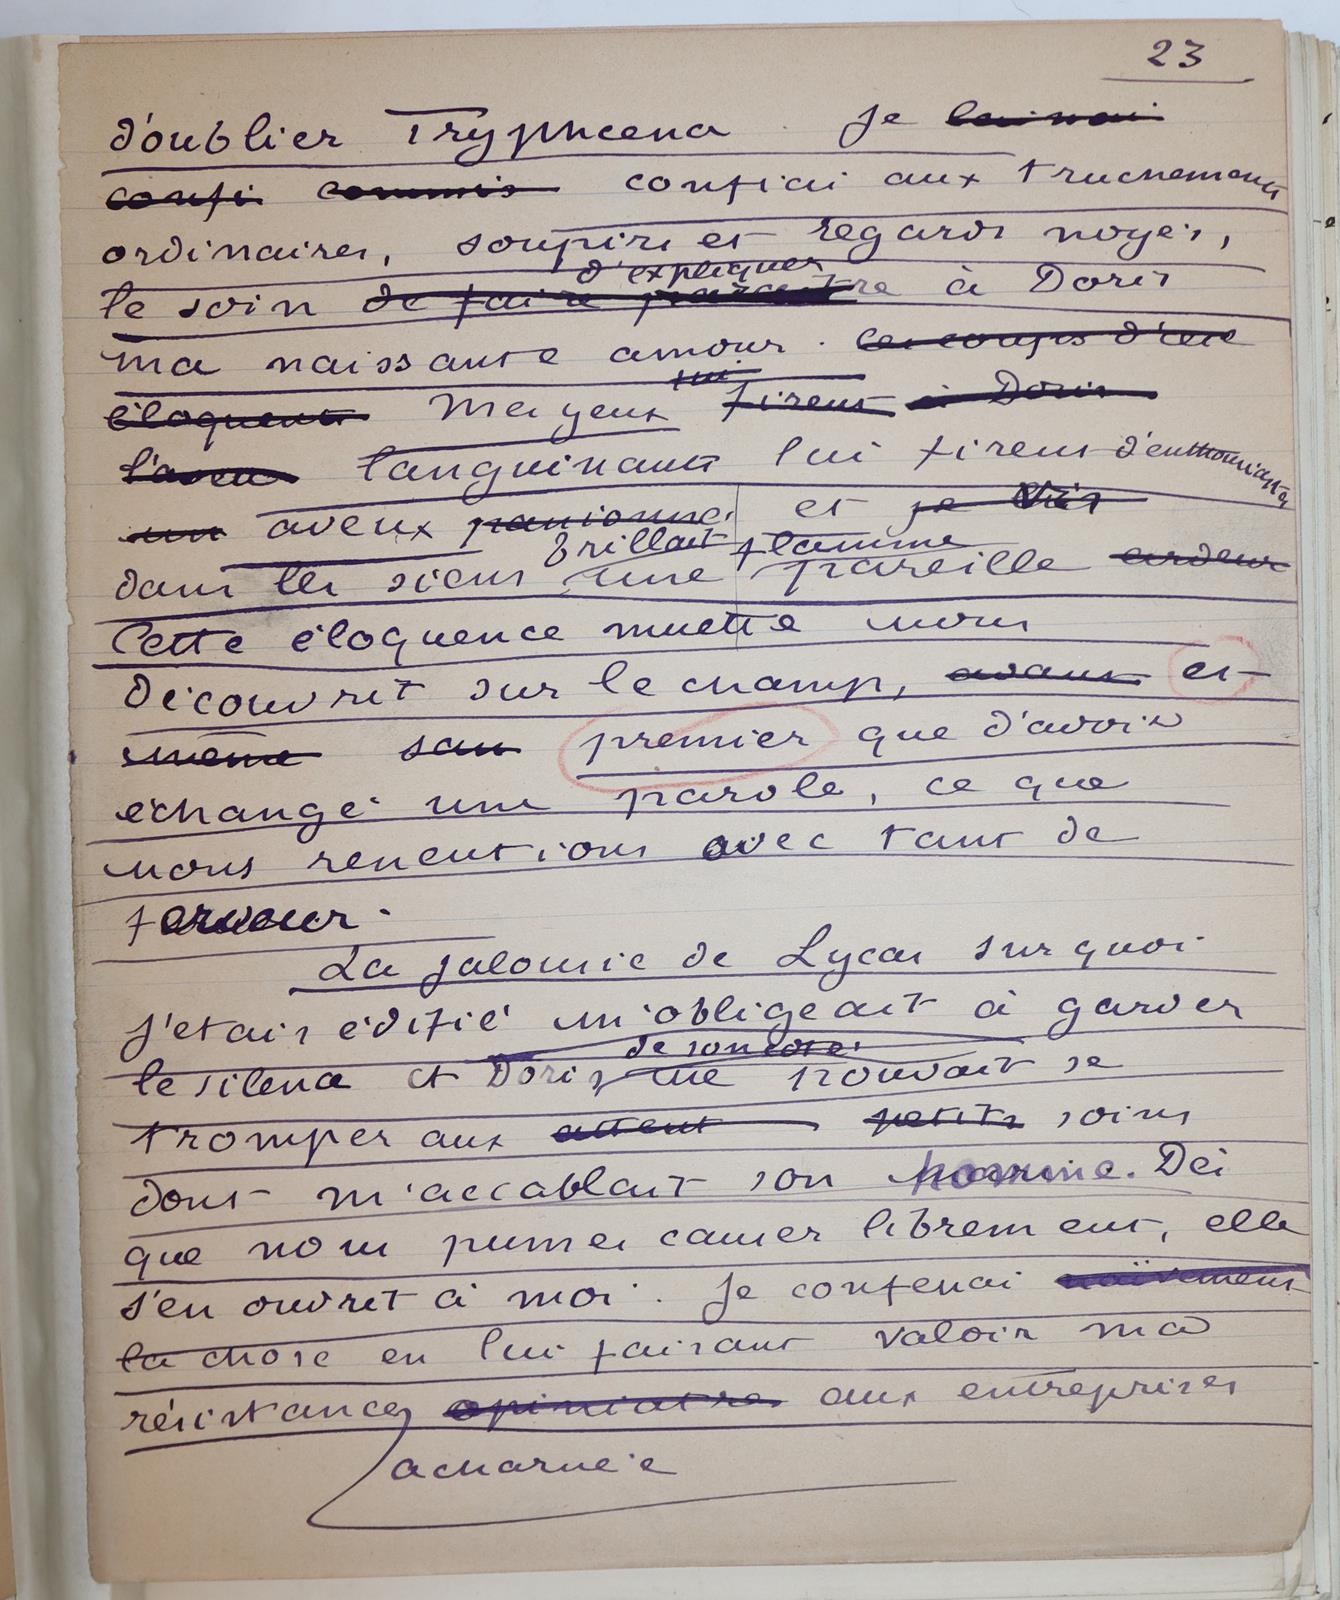 23
d'oublier Tryphœna. Je
confi commis confiai aux truchements
ordinaires, soupirs et regards noyés,
d'expliquer
le soin de faire à Doris
ma naissante amour. les coups d'œil
éloquents Mes yeux firent à Doris
l'aveu languissants lui firent d'enthousiastes
un aveux passionnés et je vis
brillait flamme
dans les siens une pareille ardeur
Cette éloquence muette nous
découvrit sur le champ, avant et
même sans premier que d'avoir
échangé une parole, ce que
nous ressentions avec tant de
ferveur.
La jalousie de Lycas sur quoi
j'étais édifié m'obligeait à garder
de son côté
le silence et Doris ne pouvait se
tromper aux attent petits soins
dont m'accablait son homme. Dès
que nous pumes causer librement, elle
s'en ouvrit à moi. Je confessai naïvement
la chose en lui faisant valoir ma
résistance opiniatre aux entreprises
acharnée